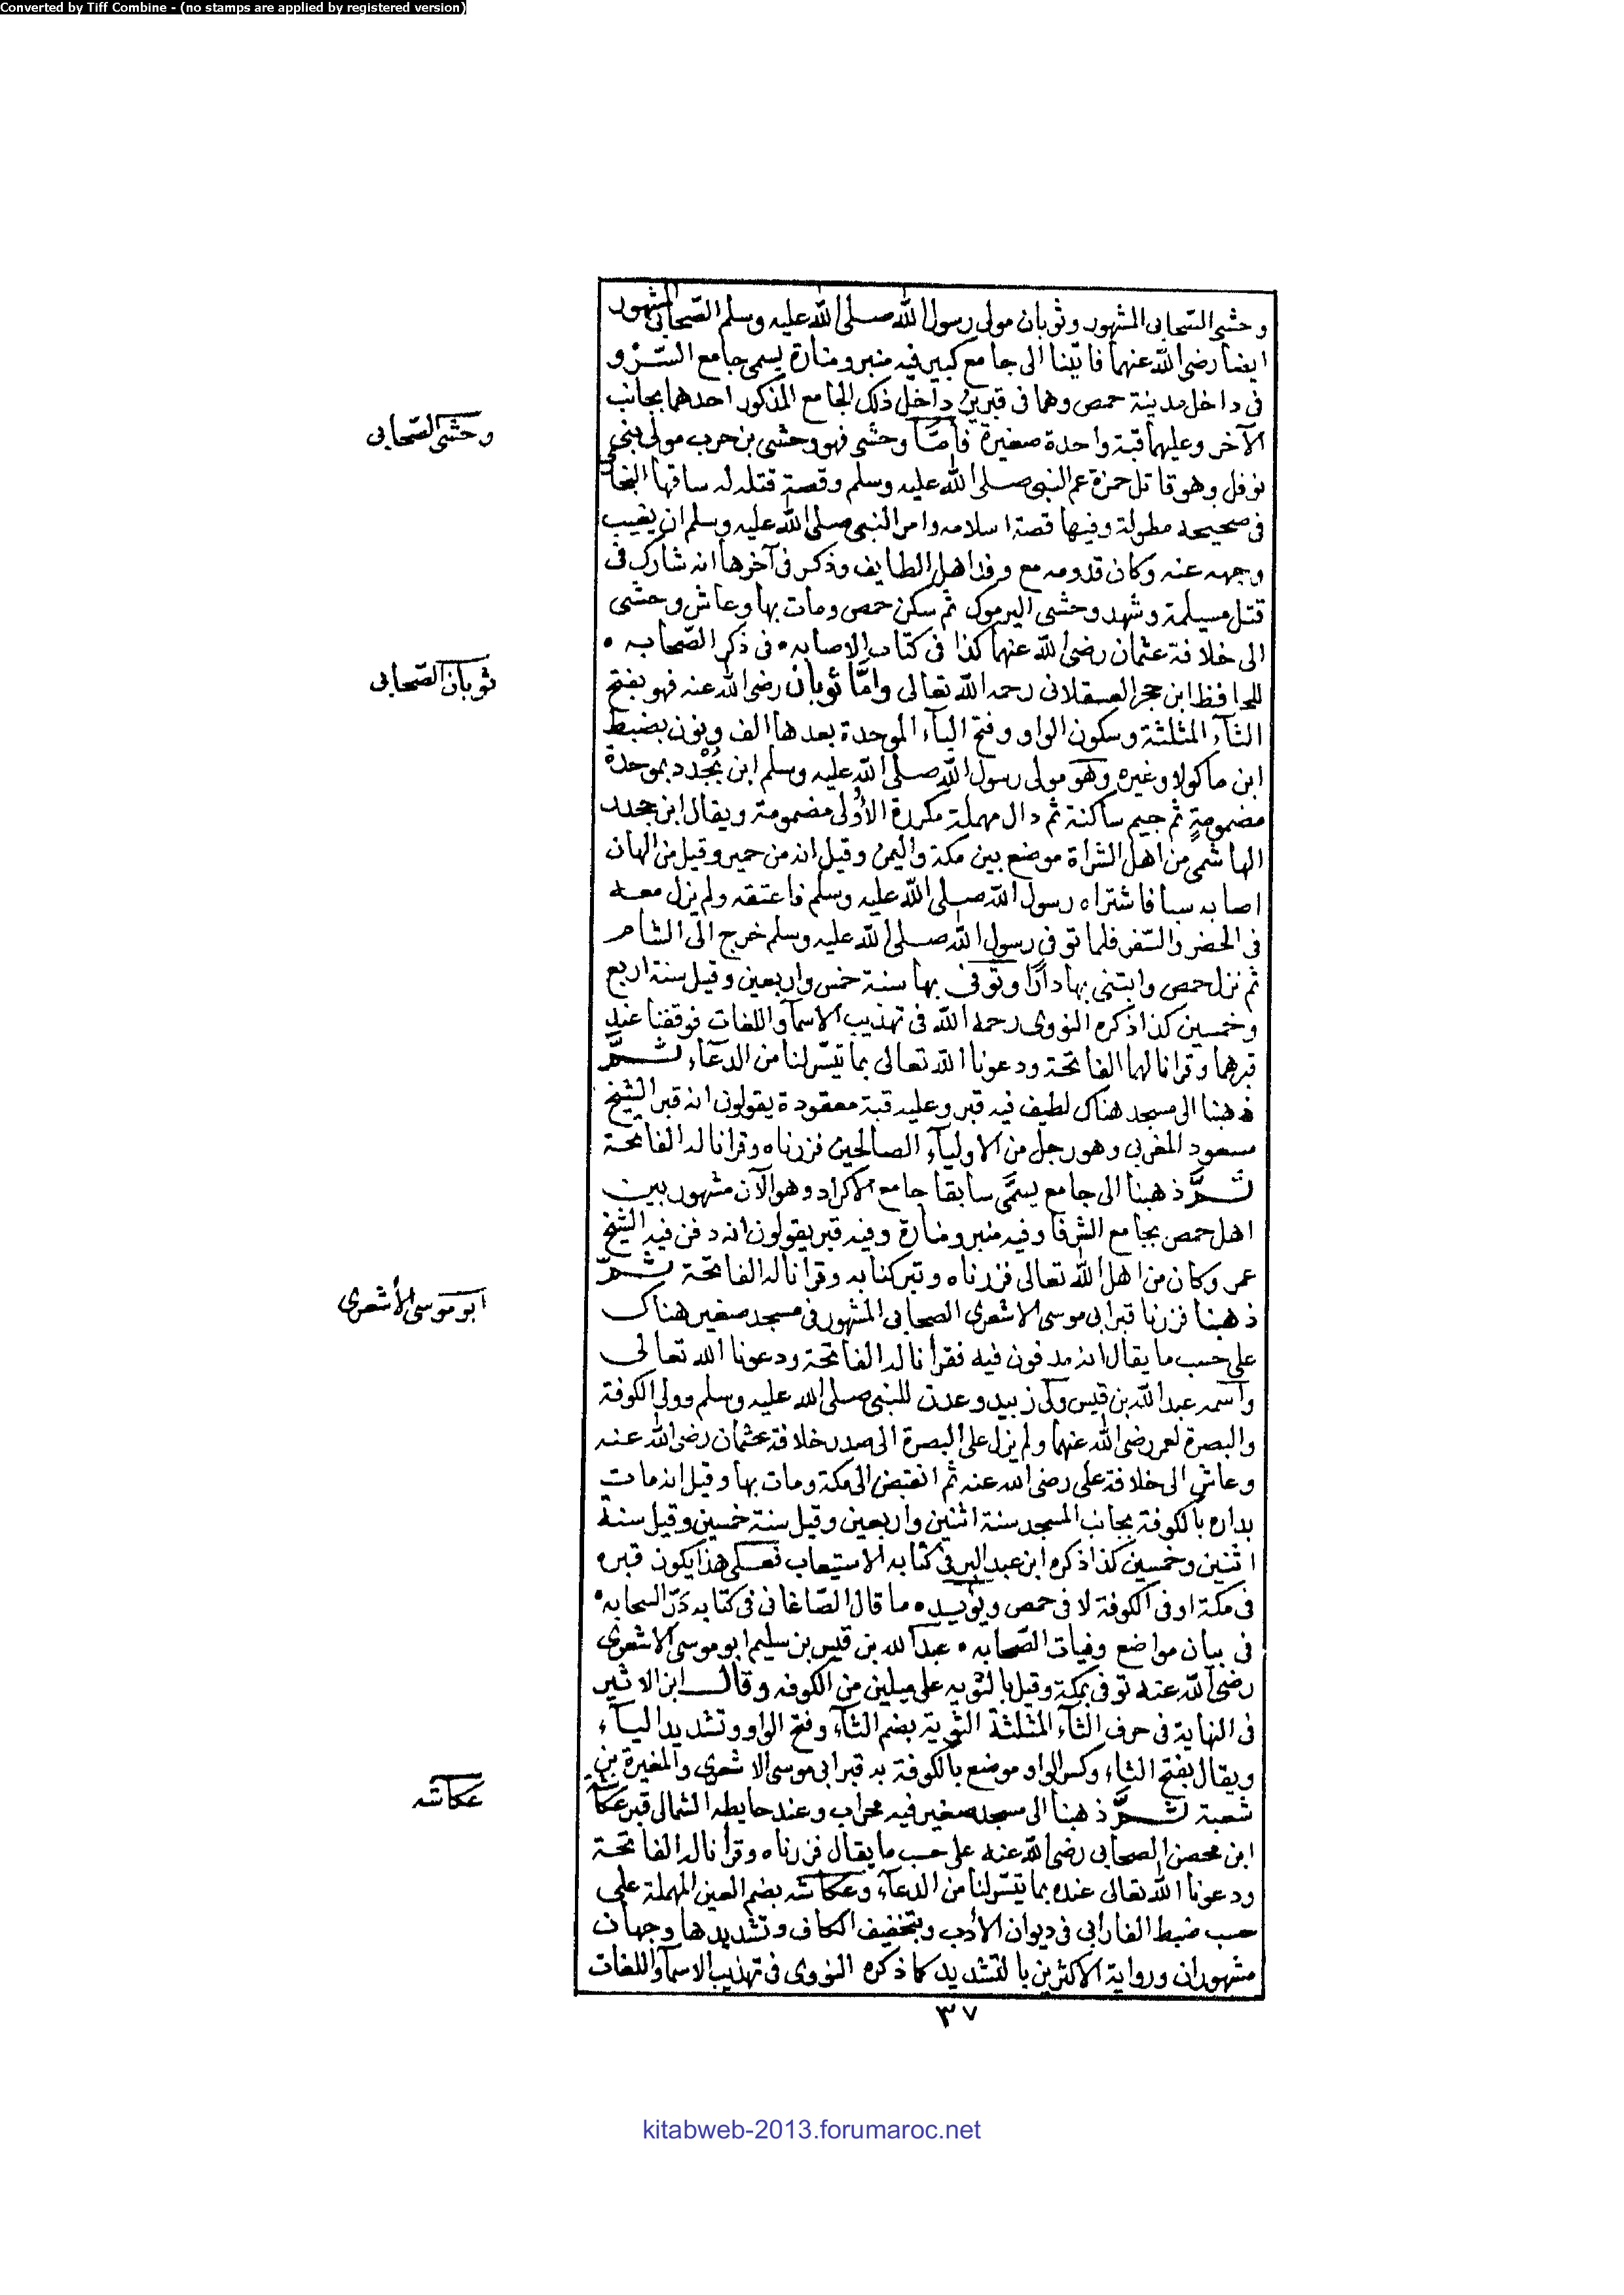 Converted by Tiff Combine - (no stamps are applied by registered version)
وحشى الصحابى المشهور وثوبان مولى رسول الله صلى الله عليه وسلم الصحابى المشهور
ايضا رضى الله عنهما فاتينا الى جامع كبير فيه منبر ومنارة يسمى جامع السرو
فى داخل مدينة حمص وهما فى قبرين داخل ذلك الجامع المذكور احدهما بجانب
الآخر وعليهما قبة واحدة صغيرة فأمّا وحشى فهو وحشى بن حرب مولى بنى
وحشى الصّحابى
نوفل وهو قاتل حمزة عم النبى صلى الله عليه وسلم وقصة قتله له ساقها البخارى
فى صحيحه مطولة وفيها قصة اسلامه وامر النبى صلى الله عليه وسلم ان يغيب
وجهه عنه وكان قدومه مع وفد اهل الطايف وذكر فى آخرها انه شارك فى
قتل مسيلمة وشهد وحشى اليرموك ثم سكن حمص ومات بها وعاش وحشى
الى خلافة عثمان رضى الله عنهما كذا فى كتاب الاصابه فى ذكر الصّحابه
للحافظ ابن حجر العسقلانى رحمه الله تعالى وامّا ثوبان رضى الله عنه فهو بفتح
ثوبان الصّحابى
الثآء المثلثة وسكون الواو وفتح البآء الموحدة بعدها الف ونون بضبط
ابن ماكولا وغيره وهو مولى رسول الله صلى الله عليه وسلم ابن بُجْدد بموحدة
مضمومةٍ ثم جيم ساكنة ثم دال مهملة مكررة الأولى مضمومة ويقال ابن جحدر
الهاشمى من اهل الشراة موضع بين مكة واليمن وقيل انه من حمير وقيل من الهان
اصابه سبا فاشتراه رسول الله صلى الله عليه وسلم فاعتقه ولم يزل معه
فى الحضر والسّفر فلما توفى رسول الله صلى الله عليه وسلم خرج الى الشام
ثم نزل حمص وابتنى بها دارًا وتوفى بها سنة خمس واربعين وقيل سنة اربع
وخمسين كذا ذكره النووى رحمه الله فى تهذيب الاسما واللغات فوقفنا عند
قبرهما وقرانا لهما الفاتحة ودعونا الله تعالى بما تيسّر لنا من الدعآء ثمَّ
ذهبنا الى مسجد هناك لطيف فيه قبر وعليه قبة معقودة يقولون انه قبر الشيخ
مسعود المغربى وهو رجل من الاوليآء الصالحين فزرناه وقرانا له الفاتحة
ثمَّ ذهبنا الى جامع يسمَّى سابقا جامع الاكراد وهو الآن مشهور بين
اهل حمص بجامع الشرفا وفيه منبر ومنارة وفيه قبر يقولون انه دفن فيه الشيخ
عمر وكان من اهل الله تعالى فزرناه وتبركنا به وقرانا له الفاتحة ثمّ
ذهبنا فزرنا قبر ابى موسى الاشعرى الصحابى المشهور فى مسجد صغير هناك
ابو موسى الأشعرى
على حسب ما يقال انه مدفون فيه فقرأنا له الفاتحة ودعونا الله تعالى
وآسمه عبد الله بن قيس ولى زبيد وعدن للنبى صلى الله عليه وسلم وولى الكوفة
والبصرة لعمر رضى الله عنهما ولم يزل على البصرة الى صدر خلافة عثمان رضى الله عنه
وعاش الى خلافة على رضى الله عنه ثم انقبض الى مكة ومات بها وقيل انه مات
بداره بالكوفة بجانب المسجد سنة اثنين واربعين وقيل سنة خمسين وقيل سنة
اثنين وخمسين كذا ذكره ابن عبد البر فى كتابه الاستيعاب فعلى هذا يكون قبره
فى مكة او فى الكوفة لا فى حمص ويؤيده ما قال الصّاغانى فى كتابه درّ السحابه
فى بيان مواضع وفيات الصّحابه عبد الله بن قيس بن سليم ابو موسى الاشعرى
رضى الله عنه توفى بمكة وقيل بالثويه على ميلين من الكوفه وقال ابن الاثير
فى النهاية فى حرف الثآء المثلثة الثوية بضم الثآء وفتح الواو وتشديد اليآء
ويقال بفتح الثاء وكسر الواو موضع بالكوفة به قبر ابى موسى الاشعرى والمغيرة بن
شعبة ثمَّ ذهبنا الى مسجد صغير فيه محراب وعند حايطه الشمالى قبر عكاشة
عكاشه
ابن محصن الصحابى رضى الله عنه على حسب ما يقال فزرناه وقرأنا له الفاتحة
ودعونا الله تعالى عنده بما تيسّر لنا من الدعآء وعكاشه بضم العين المهملة على
حسب ضبط الفارابى فى ديوان الأدب وبتخفيف الكاف وتشديدها وجهان
مشهوران ورواية الاكثرين بالتشديد كما ذكره النووى فى تهذيب الاسمآ واللغات
٣٧
kitabweb-2013.forumaroc.net